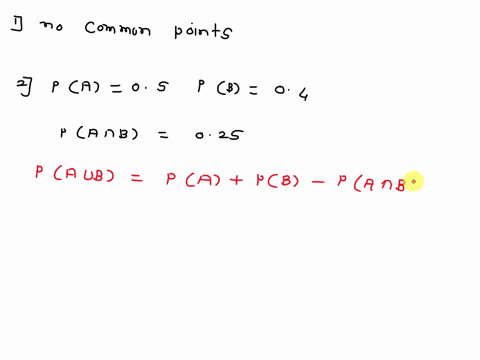 1] no common points
2] P(A) = 0.5 P(B) = 0.4
P(A∩B) = 0.25
P(A∪B) = P(A) + P(B) - P(A∩B